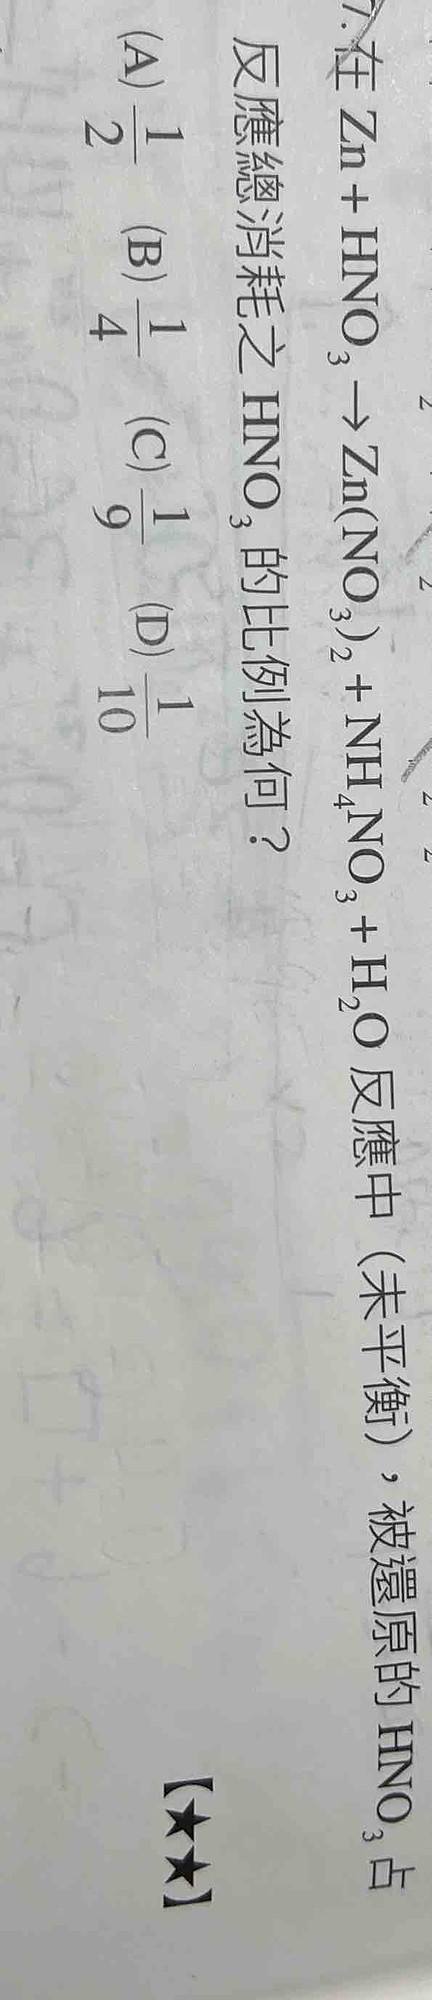 7. 在 Zn + HNO₃ → Zn(NO₃)₂ + NH₄NO₃ + H₂O 反應中（未平衡），被還原的 HNO₃ 占
反應總消耗之 HNO₃ 的比例為何？
(A) 1/2 (B) 1/4 (C) 1/9 (D) 1/10
【★★】